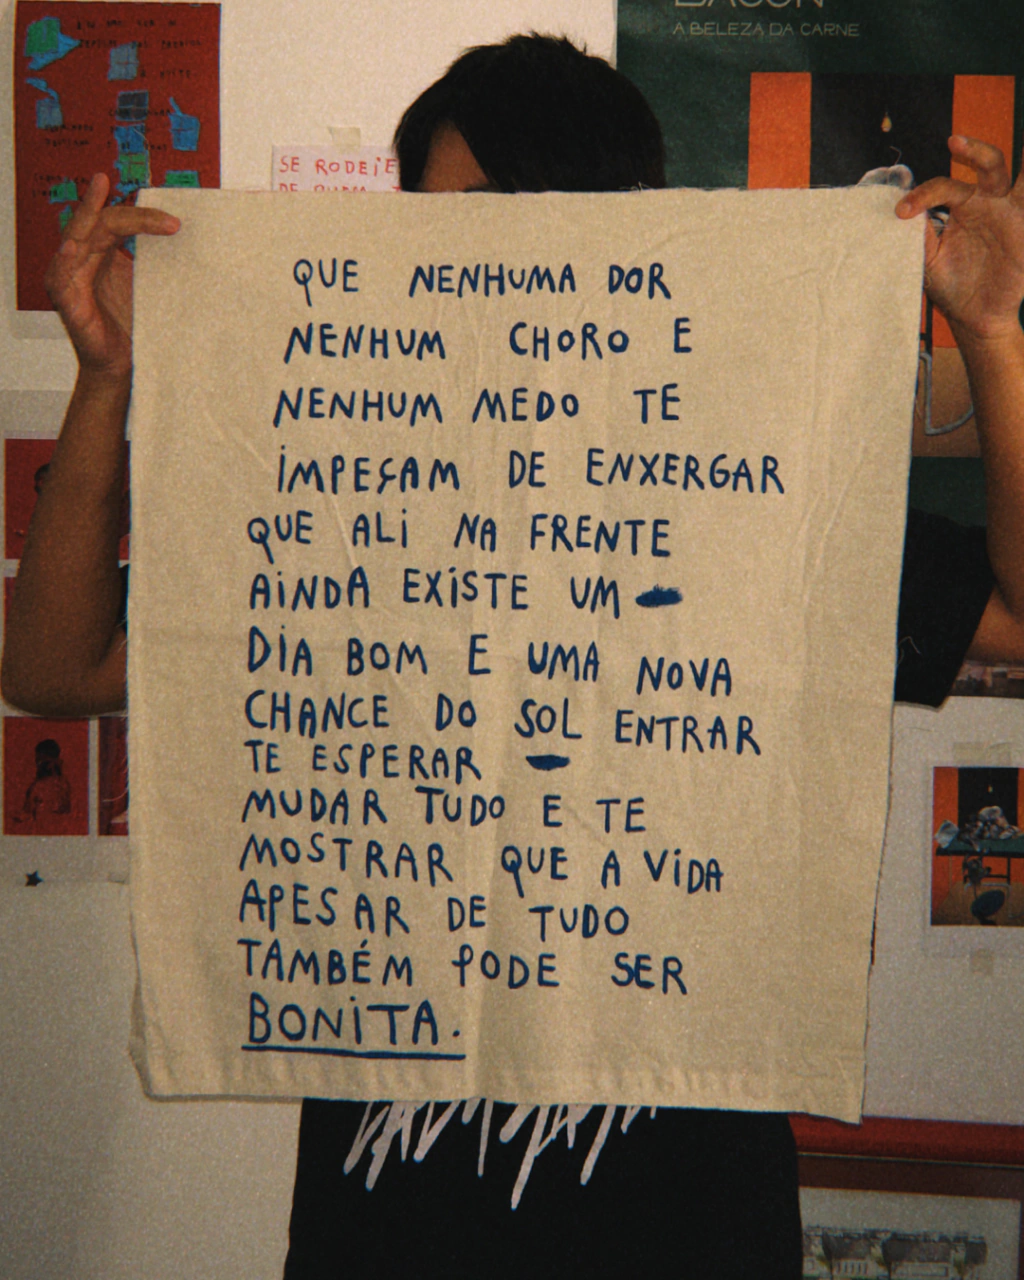 BACON
A BELEZA DA CARNE
SE RODEIE
QUE NENHUMA DOR
NENHUM CHORO E
NENHUM MEDO TE
IMPEÇAM DE ENXERGAR
QUE ALI NA FRENTE
AINDA EXISTE UM
DIA BOM E UMA NOVA
CHANCE DO SOL ENTRAR
TE ESPERAR
MUDAR TUDO E TE
MOSTRAR QUE A VIDA
APESAR DE TUDO
TAMBÉM PODE SER
BONITA.